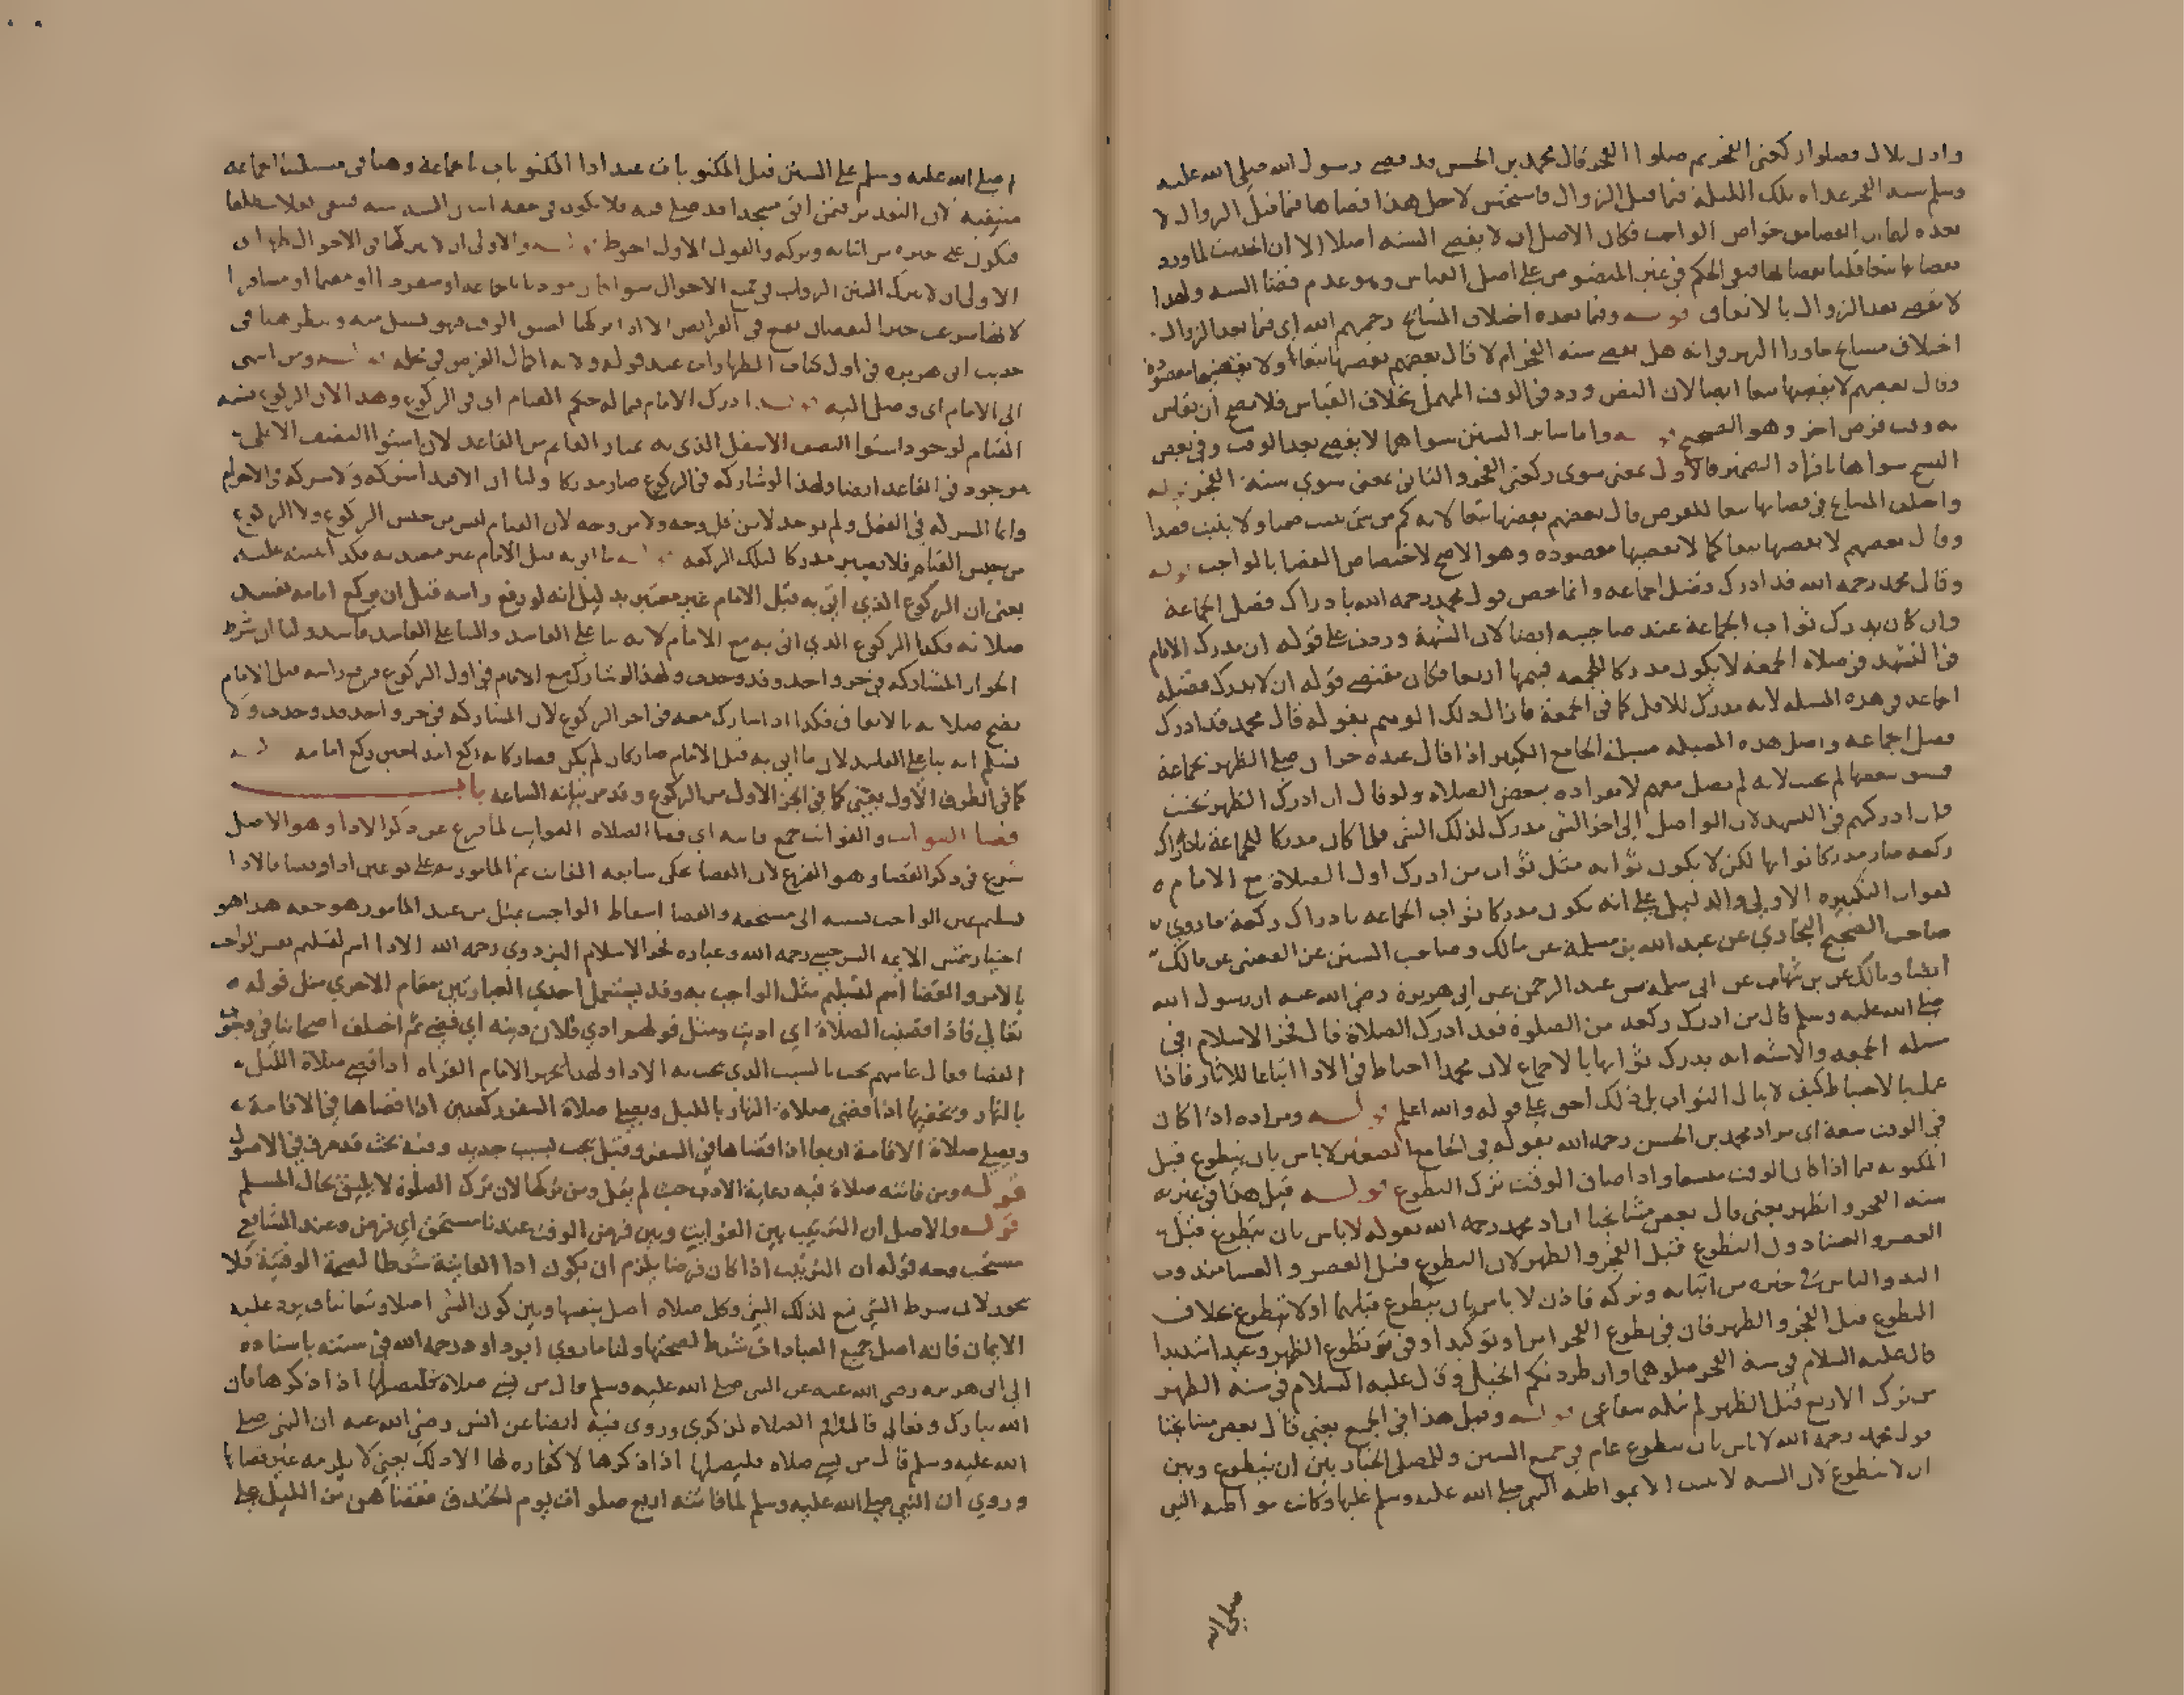 واذن بلال فصلوا ركعتي الفجر ثم صلوا الفجر قال محمد بن الحسن فقد قضى رسول الله صلى الله عليه
وسلم سنة الفجر غداة تلك الليلة فيما قبل الزوال فاستحسن لاجل هذا قضاها فيما قبل الزوال لا
بعده القضا من خواص الواجب فكان الاصل ان لا يقضى السنة اصلا الا ان الحديث لما ورد
بقضاها تبعا قلنا بقضائها فبقي الحكم في غير المنصوص على اصل القياس وهو عدم قضا السنة ولهذا
لا يقضى بعد الزوال بالاتفاق قوله وفيما بعده اختلاف المشايخ رحمهم الله اي فيما بعد الزوال
اختلاف مشايخ ما ورا النهر وانه هل يقضى سنة الفجر ام لا قال بعضهم يقضيها تبعا ولا يقضيها مقصودة
وقال بعضهم لا يقضيها تبعا ايضا لان النص ورد في الوقت المهمل بخلاف القياس فلا يصح ان يقاس
به وقت فرض اخر وهو الصحيح قوله واما ساير السنن سواهما لا يقضى بعد الوقت وفي بعض
النسخ سواها بافراد الضمير فالاول بمعنى سوى ركعتي الفجر والثاني بمعنى سوى سنة الفجر قوله
واختلف المشايخ في قضائها تبعا للفرض قال بعضهم يقضيها تبعا لانه كم من شي يثبت ضمنا ولا يثبت قصدا
وقال بعضهم لا يقضيها تبعا كما لا يقضيها مقصوده وهو الاصح لاختصاص القضا بالواجب قوله
وقال محمد رحمه الله قد ادرك فضل الجماعه وانما خص قول محمد رحمه الله بادراك فضل الجماعة
وان كان يدرك ثواب الجماعة عند صاحبيه ايضا لان الشبهة وردت على قوله ان مدرك الامام
في التشهد في صلاة الجمعة لا يكون مدركا للجمعه فيتمها اربعا فكان مقتضى قوله ان لا يدرك فضيله
الجماعه في هذه المسله لانه مدرك للاقل كما في الجمعة فازال ذلك الوهم بقوله قال محمد قد ادرك
فضل الجماعه واصل هذه المسيله مسيلة الجامع الكبير اذا قال عبده حر ان صلى الظهر بجماعة
فسبق ببعضها لم يحنث لانه لم يصل معهم لانفراده ببعض الصلاه ولو قال ان ادرك الظهر يحنث
وان ادركهم في التشهد لان الواصل الى اخر الشي مدرك لذلك الشي فلما كان مدركا للجماعة بادراك
ركعه صار مدركا ثوابها لكن لا يكون ثوابه مثل ثواب من ادرك اول الصلاة مع الامام
لفوات التكبيره الاولى والدليل على انه يكون مدركا ثواب الجماعه بادراك ركعة ما روي
صاحب الصحيح البخاري عن عبد الله بن مسلمة عن مالك وصاحب السنن عن القعنبي عن مالك
ايضا ومالك عن بن شهاب عن ابي سلمه بن عبد الرحمن عن ابي هريرة رضي الله عنه ان رسول الله
صلى الله عليه وسلم قال من ادرك ركعه من الصلوة فقد ادرك الصلاة قال فخر الاسلام في
مسله الجمعه والاشبه انه يدرك ثوابها بالاجماع لان محمدا احتاط في الادا اتباعا للاثار فاذا
عمل بالاحتياط كيف لا ينال الثواب بل ذلك احق على قوله والله اعلم قوله ومراده اذا كان
في الوقت سعة اي مراد محمد بن الحسن رحمه الله بقوله في الجامع الصغير لا باس بان يتطوع قبل
المكتوبه بما اذا كان الوقت متسعا واذا ضاق الوقت يترك التطوع قوله قيل هذا في غير
سنة الفجر والظهر يعني قال بعض مشايخنا اراد محمد رحمه الله بقوله لا باس بان يتطوع قبل
العصر والعشا دون التطوع قبل الفجر والظهر لان التطوع قبل العصر والعشا مندوب
اليه والناس في خيره من اتيانه وتركه فاذن لا باس بان يتطوع قبلهما او لا يتطوع بخلاف
التطوع قبل الفجر والظهر فان في تطوع الفجر امرا وتوكيدا وفي تطوع الظهر وعيدا شديدا
قال عليه السلام في سنة الفجر صلوهما وان طردتكم الخيل وقال عليه السلام في سنة الظهر
من ترك الاربع قبل الظهر لم تنله شفاعتي قوله وقيل هذا في الجميع يعني قال بعض مشايخنا
قول محمد رحمه الله لا باس بان يتطوع عام في جميع السنن وللمصلى الخيار بين ان يتطوع وبين
ان لا يتطوع لان السنه لا تثبت الا بمواظبه النبي صلى الله عليه وسلم عليها وكانت مواظبه النبي
صلى الله
صلى الله عليه وسلم على السنن قبل المكتوبات عند ادا المكتوبات بالجماعة وهنا في مسلتنا الجماعه
منتفيه لان التقدير فيمن اتى مسجدا قد صلي فيه فلا يكون في حقه اتيان السنن سنه فبقي نفلا مطلقا
فيكون على خيره من اتيانه وتركه والقول الاول احوط قوله والاولى ان لا يتركها في الاحوال كلها اي
الاولى ان لا يترك السنن الرواتب في جميع الاحوال سوا كان مودبا بالجماعه او منفردا او مقيما او مسافرا
لانها شرعت جبرا لنقصان يقع في الفرايض الا اذا تركها لضيق الوقت فهو بسبيل منه وينظر هنا في
حديث ابي هريره في اول كتاب الطهارات عند قوله ولانه اكمال الفرض في محله قوله ومن انتهى
الى الامام اي وصل اليه قوله ادرك الامام فيما له حكم القيام اي في الركوع وهذا لان الركوع يشبه
القيام لوجود استوا النصف الاسفل الذي به يمتاز القايم من القاعد لان استوا النصف الاعلى
موجود في القاعد ايضا ولهذا لو شاركه في الركوع صار مدركا ولنا ان الاقتدا شركه ولا شركه في الاحرام
وانما الشركه في الفعل ولم يوجد لا من كل وجه ولا من وجه لان القيام ليس من جنس الركوع ولا الركوع
من جنس القيام فلا يصير مدركا لتلك الركعه قوله ما اتى به قبل الامام غير معتد به فكذا يبتنى عليه
يعني ان الركوع الذي اتى به قبل الامام غير معتبر بدليل انه لو رفع راسه قبل ان يركع امامه تفسد
صلاته فكذا الركوع الذي اتى به مع الامام لانه بنا على الفاسد والبنا على الفاسد فاسد ولنا ان شرط
الجواز المشاركه في جزو واحد وقد وجدت ولهذا لو شارك مع الامام في اول الركوع فرفع راسه قبل الامام
يصح صلاته بالاتفاق فكذا اذا شارك معه في اخر الركوع لان المشاركه في جزو واحد قد وجدت ولا
نسلم انه بنا على الفاسد لان ما اتى به قبل الامام صار كان لم يكن فصار كانه ركع ابتدا حين ركع امامه قوله
كما في الطرف الاول يعني كما في الجزؤ الاول من الركوع وقد مر بيانه الساعه باب
قضا الفوايت والفوائت جمع فايته اي قضا الصلاه الفوايت لما فرغ عن ذكر الادا وهو الاصل
شرع في ذكر القضا وهو الفرع لان القضا يحكي سابقه الفايت ثم المامور به على نوعين ادا وقضا فالادا
تسليم عين الواجب بسببه الى مستحقه والقضا اسقاط الواجب بمثل من عند المامور هو حقه هذا هو
اختيار شمس الايمه السرخسي رحمه الله وعبارة فخر الاسلام البزدوي رحمه الله الادا اسم لتسليم نفس الواجب
بالامر والقضا اسم لتسليم مثل الواجب به وقد يستعمل احدى العبارتين مقام الاخرى مثل قوله
تعالى فاذا قضيت الصلاة اي اديت ومثل قولهم ادى فلان دينه اي قضى ثم اختلف اصحابنا في وجوب
القضا فقال عامتهم يجب بالسبب الذي يجب به الادا ولهذا يجهر الامام القراه اذا قضى صلاة الليل
بالنهار ويخفيها اذا قضى صلاة النهار بالليل ويصلي صلاة السفر ركعتين اذا قضاها في الاقامة
ويصلي صلاة الاقامة اربعا اذا قضاها في السفر وقيل يجب بسبب جديد وفيه بحث قد عرف في الاصول
قوله ومن فاتته صلاة فيه رعاية الادب حيث لم يقل ومن تركها لان ترك الصلوة لا يليق بحال المسلم
قوله والاصل ان الترتيب بين الفوايت وبين فرض الوقت عندنا مستحق اي فرض وعند الشافعي
مستحب وجه قوله ان الترتيب اذا كان فرضا يلزم ان يكون ادا الفايتة شرطا لصحة الوقتية فلا
يجوز لان شرط الشي تبع لذلك الشي وكل صلاه اصل بنفسها وبين كون الشي اصلا وتبعا تناف ويرد عليه
الايمان فانه اصل جميع العبادات شرط لصحتها ولنا ما روي ابو داود رحمه الله في سننه باسناده
الى ابي هريره رضي الله عنه عن النبي صلى الله عليه وسلم قال من نسي صلاة فليصلها اذا ذكرها فان
الله تبارك وتعالى قال اقم الصلاه لذكري وروى فيه ايضا عن انس رضي الله عنه ان النبي صلى
الله عليه وسلم قال من نسي صلاه فليصلها اذا ذكرها لا كفاره لها الا ذلك يعني لا يلزمه غير قضايها
وروي ان النبي صلى الله عليه وسلم لما فاتته اربع صلوات يوم الخندق فقضاهن من الليل على